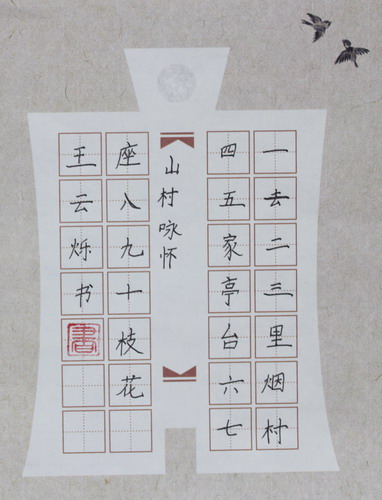 一去二三里烟村
四五家亭台六七
山村咏怀
座八九十枝花
王云烁书
書